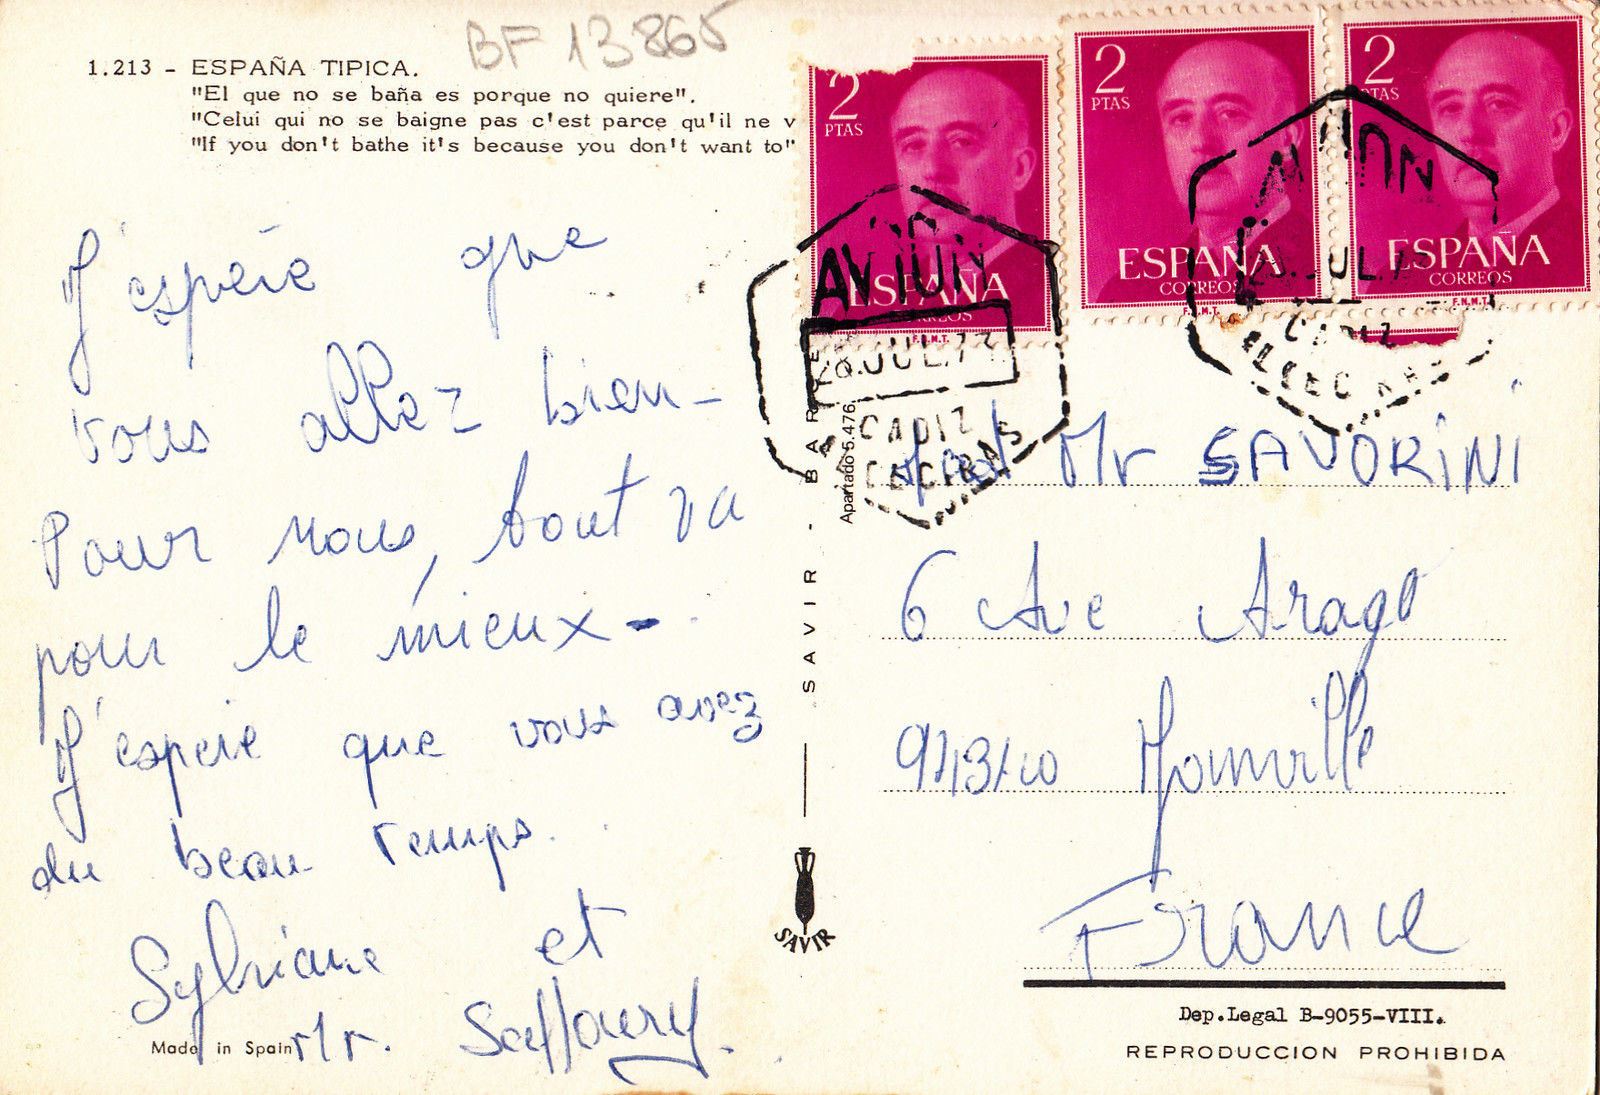 BF 13865
1.213 - ESPAÑA TIPICA.
"El que no se baña es porque no quiere".
"Celui qui no se baigne pas c'est parce qu'il ne v
"If you don't bathe it's because you don't want to"
J'espère que
vous allez bien -
Pour nous, tout va
pour le mieux -
J'espère que vous avez
du beau temps.
Sylviane et
Mr. Saffoury.
Made in Spain
2 PTAS
ESPAÑA
CORREOS
F.N.M.T.
2 PTAS
ESPAÑA
CORREOS
F.N.M.T.
2 PTAS
ESPAÑA
CORREOS
F.N.M.T.
AVION
JUL.73
CADIZ
ALGECIRAS
AVION
JUL.73
CADIZ
ALGECIRAS
SAVIR - BARCE
Apartado 5.476
SAVIR
Mr SAVORINI
6 Ave Arago
Joinville
France
Dep. Legal B-9055-VIII.
REPRODUCCION PROHIBIDA